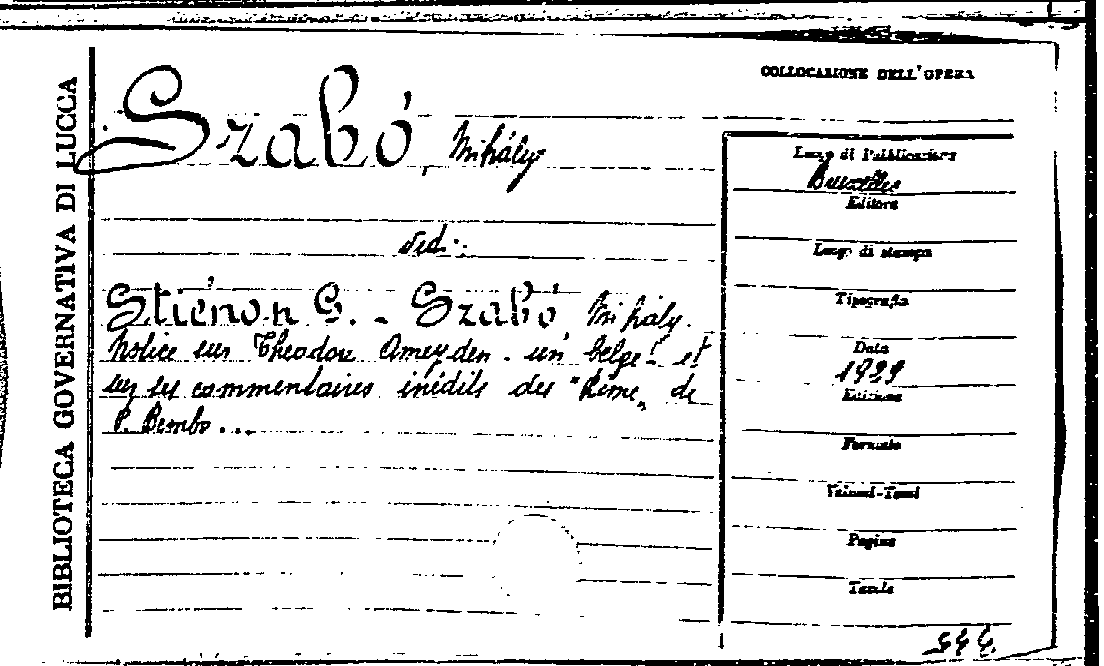 BIBLIOTECA GOVERNATIVA DI LUCCA
COLLOCAZIONE DELL'OPERA
Szabó, Mihály
ved:
Stiénon G. - Szabó, Mihály.
Notice sur Theodore Ameyden - un belge - et
sur ses commentaires inédits des "Rime" de
P. Bembo...
Luogo di Pubblicazione
Bruxelles
Editore
Luogo di stampa
Tipografia
Data
1929
Edizione
Formato
Volumi-Tomi
Pagine
Tavole